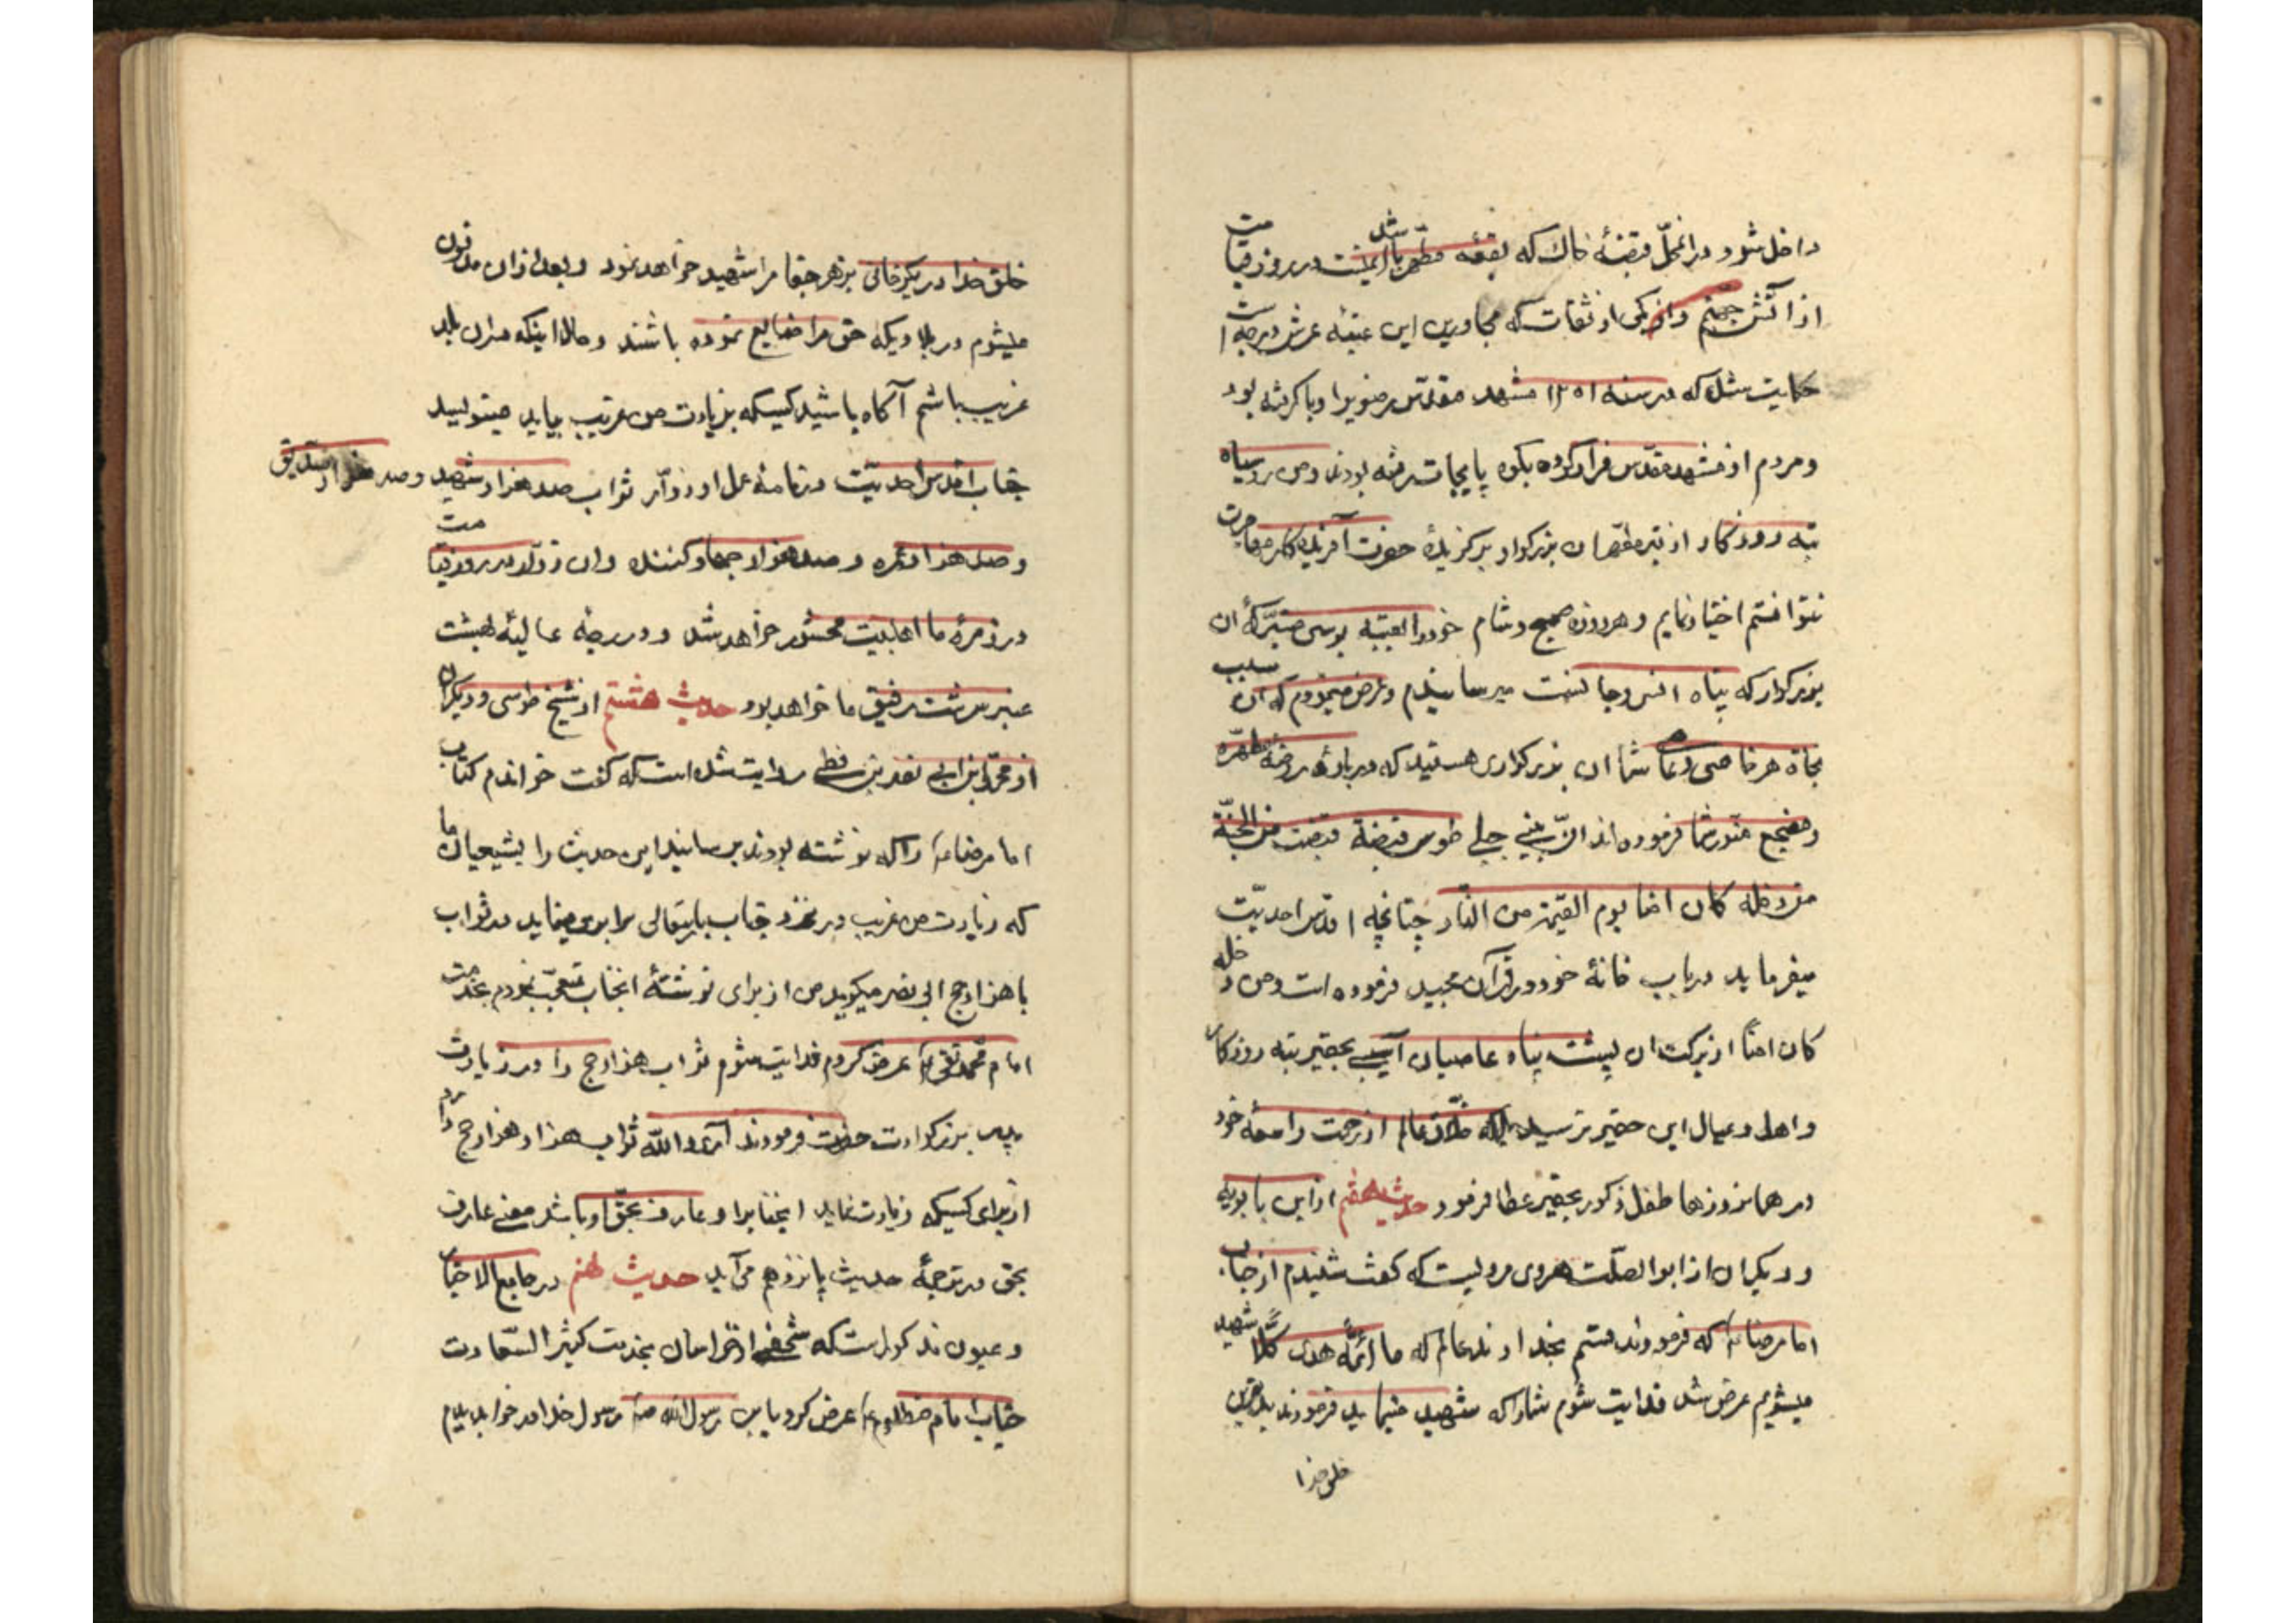 داخل شود در انمحلّ قبضهٔ خاك كه بقعه مطهّر باشد ايمنست در روز قيامت
از آتش جهنّم و از يكى از ثقات كه مجاورين اين عتبهٔ عرش درجه است
حكايت شد كه در سنه ١٢٥١ مشهد مقدّس رضويرا وبا كرفته بود
و مردم از مشهد مقدّس فرار كرده بكوه پايجات رفته بودند و من روسياه
تبه روزكار از قبهٔ مطهّر ان بزركوار بركزيدهٔ حضرت آفريدكار مهاجرت
نتوانستم اختيار نمايم و هر روزه صبح و شام خود را بعتبه بوسى متبرّكهٔ ان
بزركوار كه پناه انس و جانست ميرسانيدم و عرض مينمودم كه ان سبب
نجاة هر خاصى و عام شما ان بزركوارى هستيد كه در بارهٔ روضهٔ مطهّره
و مضجع منوّر شما فرموده اند انّ بين جبلى طوس قبضة قبضت من الجنّة
من دخله كان امنا يوم القيمة من النّار چنانچه اقدس احديّت
ميفرمايد در باب خانهٔ خود در قرآن مجيد فرموده است و من دخله
كان امنًا از بركت ان پشت پناه عاصيان آسيبى بحقير تبه روزكار
و اهل و عيال اين حقير نرسيد بلكه خلّاق عالم از رحمت واسعهٔ خود
در همان روزها طفل ذكور بحقير عطا فرمود حديث هفتم از ابن بابويه
و ديكران از ابو الصّلت هروى مرويست كه كفت شنيدم از جناب
امام رضا ع كه فرمودند قسم بخداوند عالم كه ما ائمّهٔ هدى كلًّا شهيد
ميشويم عرض شد فدايت شوم شما را كه شهيد مينمايد فرمودند بدترين
خلق خدا
خلق خدا در يكزمانى بزهر جفا مرا شهيد خواهد نمود و بعد از ان مدفون
ميشوم در بلاديكه حق مرا ضايع نموده باشند و حال اينكه در ان بلد
غريب باشم آكاه باشيد كسيكه بزيارت من غريب بيايد مينويسد
جناب اقدس احديّت در نامهٔ عمل او زوّار ثواب صد هزار شهيد و صد هزار صديق
و صد هزار عمره و صد هزار جهاد كننده و ان زوّار در روز قيامت
در زمرهٔ ما اهلبيت محشور خواهد شد و در درجهٔ عاليهٔ بهشت
عنبر سرشت رفيق ما خواهد بود حديث هشتم از شيخ طوسى و ديكران
از محمّد ابن ابى نصر بزنطى روايت شده است كه كفت خواندم كتاب
امام رضا ع را كه نوشته بودند برسانيد اين حديث را بشيعيان ما
كه زيارت من غريب در نزد جناب باريتعالى برابرى مينمايد در ثواب
با هزار حج ابى نصر ميكويد من از براى نوشتهٔ انجناب تعجّب نمودم بخدمت
امام محمّد تقى ع عرض كردم فدايت شوم ثواب هزار حج را در زيارت
پدر بزركوارت دارد حضرت فرمودند آرى و اللّه ثواب هزار هزار حج را
از براى كسيكه زيارت نمايد انجنابرا و عارف بحقّ او باشد معنى عارف
بحق در ترجمهٔ حديث پانزدهم مى آيد حديث نهم در جامع الاخبار
و عيون مذكور است كه شخصى از خراسان بخدمت كثير السّعادت
جناب امام مظلوم ع عرض كرد يا بن رسول اللّه ص رسول خدا در خواب ديدم